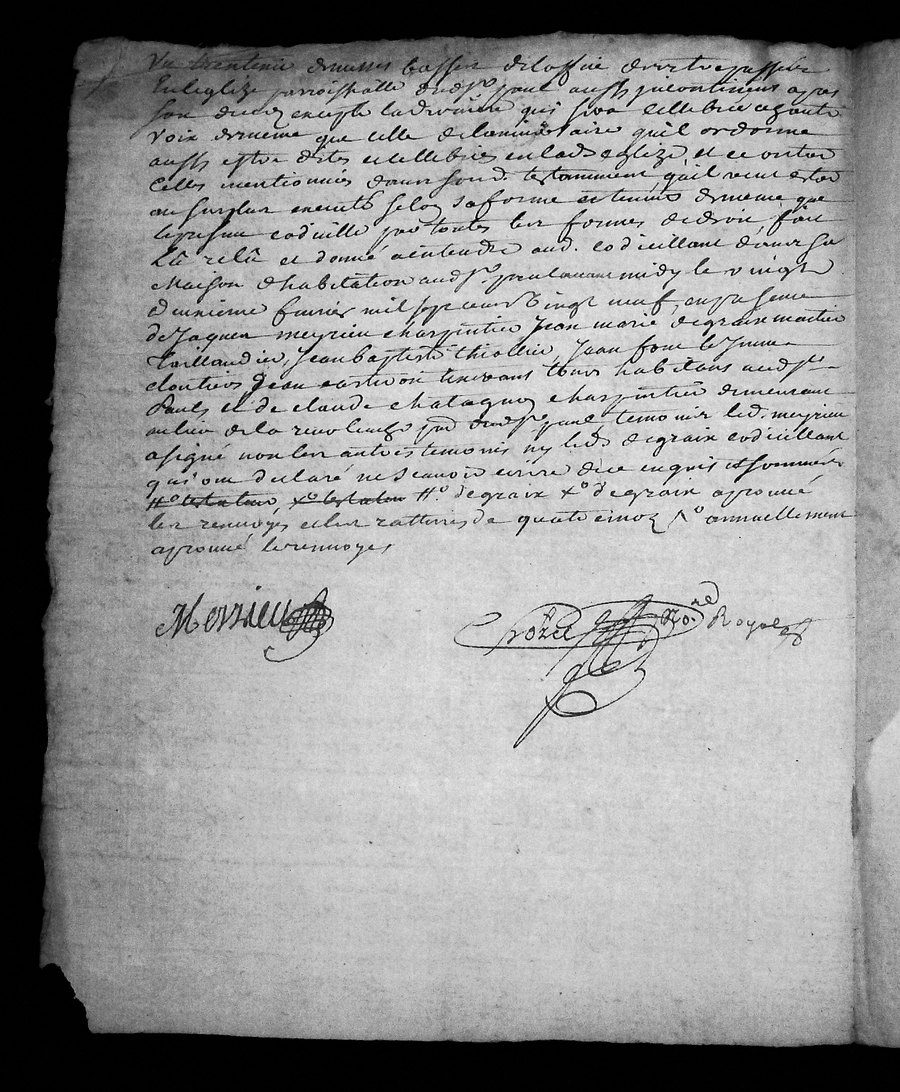 Un trentenie de messes basses de loffice des trepasses
En leglize parroissialle dud st paul aussy incontinent apres
son deces excepte la derniere qui sera cellebree a haute
voix de meme que celle de lanniversaire qu'il ordonne
aussy estre dites et cellebrées en lad. eglize, et ce outre
celles mentionnées dans son d. testamment qu'il veut estre
au surplus exécuté selon sa forme et teneur de meme que
le present codicille par toutes les formes de droit fait
Lû relû et donné a entendre aud. codicillant dans sa
Maison d'habitation aud st. paul avant midy le vingt
deuxieme fevrier mil sept cent vingt neuf, en presence
de Jaques meyrieu charpentier Jean marie degraix maitre
Taillandier, Jean baptiste thiollier, Jean font le Jeune
cloutiers Jean tous habitans aud st.
Paul, et de claude chatagnon charpentier demeurant
au lieu de la dud st paul temoins led. meyrieu
a signé non les autres temoins ny led. degraix codicillant
qui ont declaré ne scavoir ecrire de ce enquis et sommés
#o testateur, xo testateur #o degraix xo degraix aprouvé
les renvoyes et les rattures de quatre mots /o annuellement
aprouvé le renvoyes
Meyrieu
Crozet No.re Royal